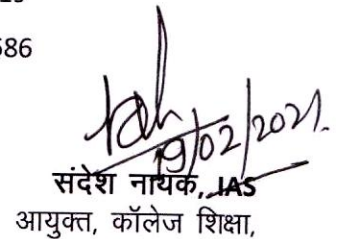 586
19/02/2021.
संदेश नायक, IAS
आयुक्त, कॉलेज शिक्षा,